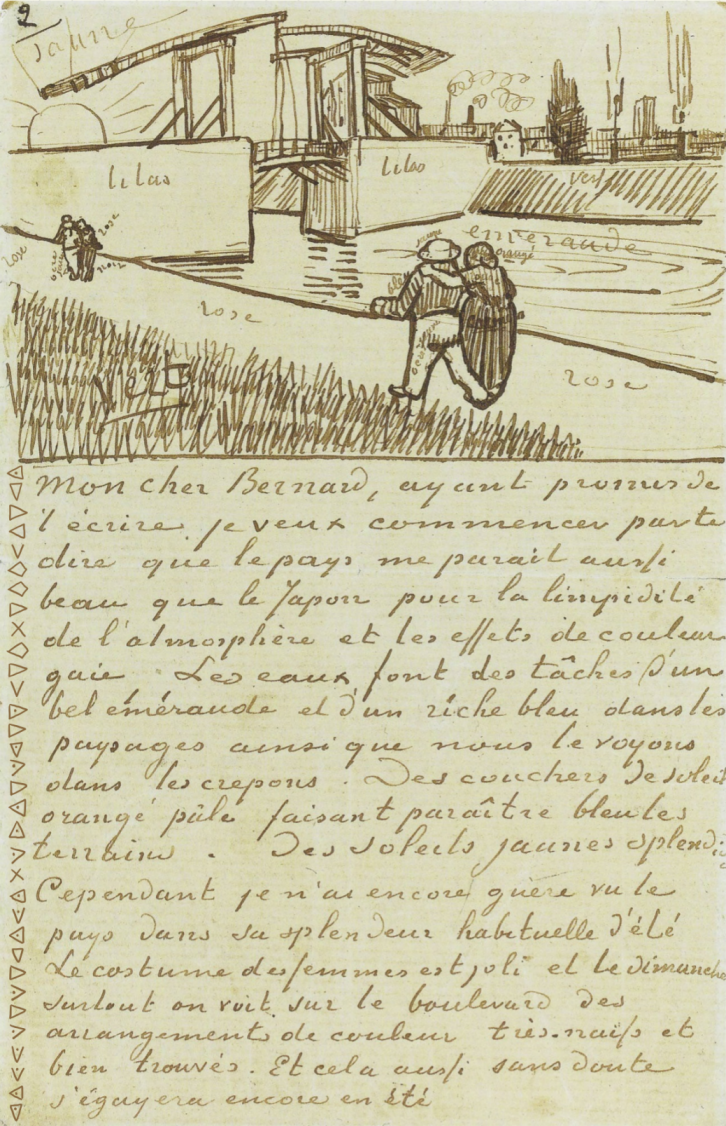 2
Jaune
lilas
lilas
vert
emeraude
rose
rose
orangé
rose
rose
vert
Mon cher Bernard, ayant promis de
t'écrire je veux commencer par te
dire que le pays me parait aussi
beau que le Japon pour la limpidité
de l'atmosphère et les effets de couleur
gaie Les eaux font des tâches d'un
bel éméraude et d'un riche bleu dans les
paysages ainsi que nous le voyons
dans les crepons. Des couchers de soleil
orangé pâle faisant paraître bleu les
terrains. Des soleils jaunes splendi
Cependant je n'ai encore guère vu le
pays dans sa splendeur habituelle d'été
Le costume des femmes est joli et le dimanche
surtout on voit sur le boulevard des
arrangements de couleur très-naifs et
bien trouvés. Et cela aussi sans doute
s'égayera encore en été